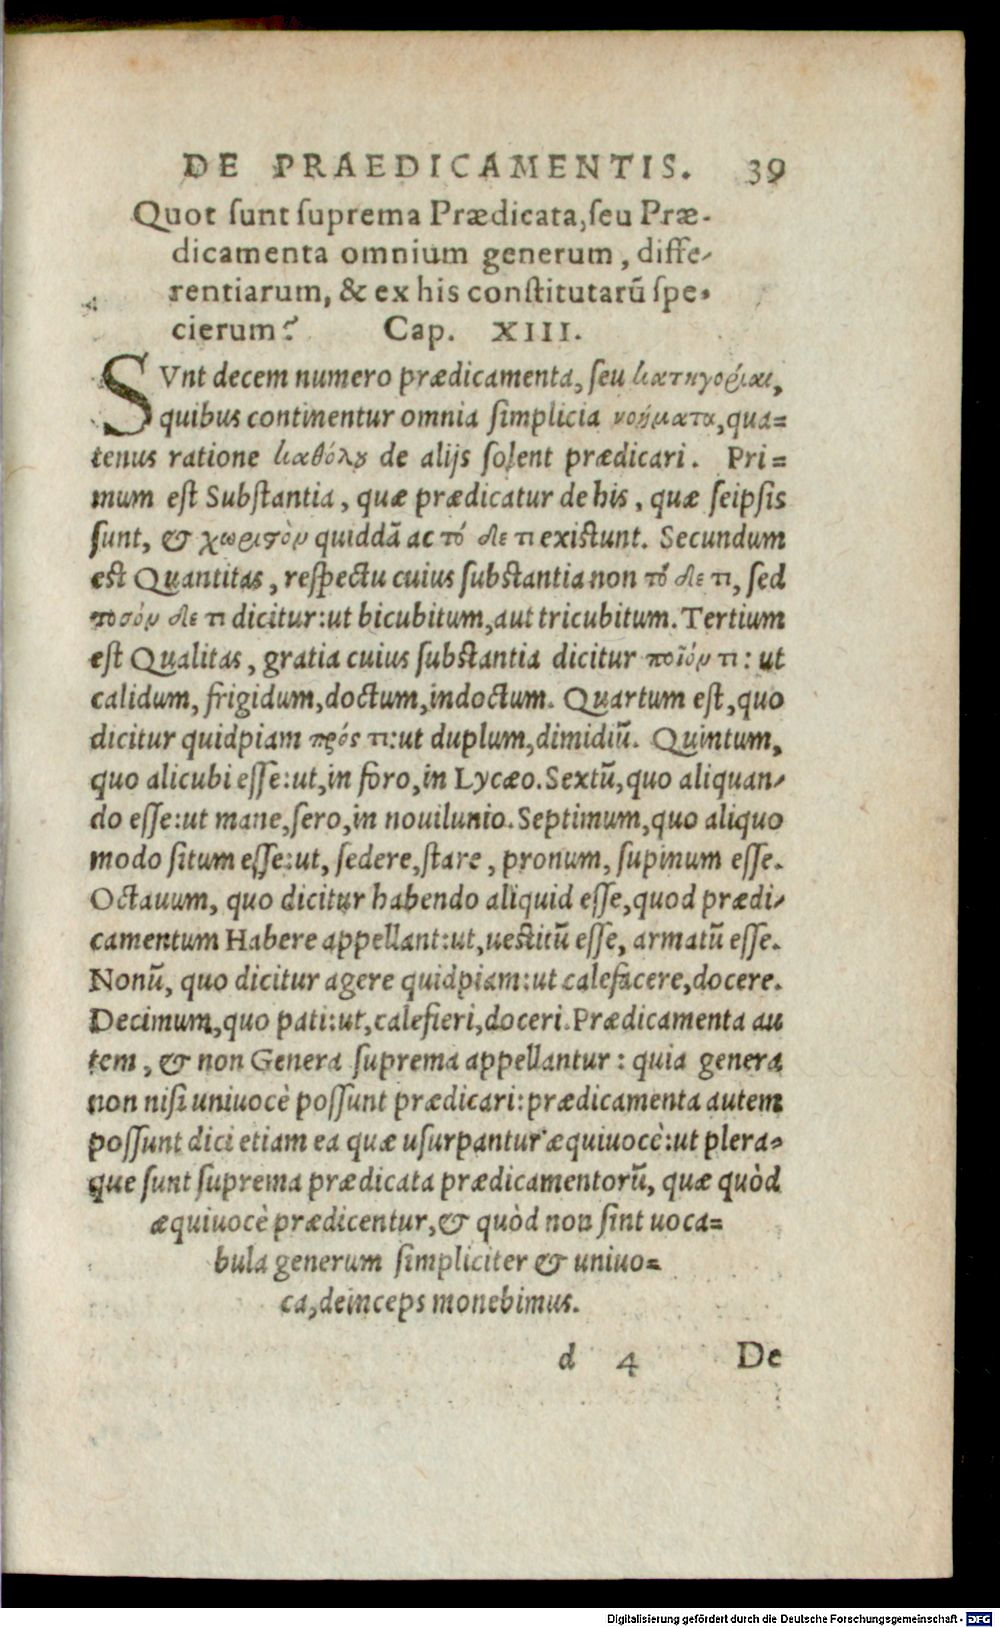 DE PRAEDICAMENTIS. 39
Quot sunt suprema Prædicata, seu Præ-
dicamenta omnium generum, diffe-
rentiarum, & ex his constitutarũ spe-
cierum? Cap. XIII.
SVnt decem numero prædicamenta, seu κατηγορίαι,
quibus continentur omnia simplicia νοήματα, qua=
tenus ratione καθόλου de alijs solent prædicari. Pri=
mum est Substantia, quæ prædicatur de his, quæ seipsis
sunt, & χωριστὸν quiddã ac τό δε τι existunt. Secundum
est Quantitas, respectu cuius substantia non τό δε τι, sed
ποσόν δε τι dicitur: ut bicubitum, aut tricubitum. Tertium
est Qualitas, gratia cuius substantia dicitur ποῖόν τι: ut
calidum, frigidum, doctum, indoctum. Quartum est, quo
dicitur quidpiam πρός τι: ut duplum, dimidiũ. Quintum,
quo alicubi esse: ut, in foro, in Lycæo. Sextũ, quo aliquan-
do esse: ut mane, sero, in nouilunio. Septimum, quo aliquo
modo situm esse: ut, sedere, stare, pronum, supinum esse.
Octauum, quo dicitur habendo aliquid esse, quod prædi-
camentum Habere appellant: ut, uestitũ esse, armatũ esse.
Nonũ, quo dicitur agere quidpiam: ut calefacere, docere.
Decimum, quo pati: ut, calefieri, doceri. Prædicamenta au
tem, & non Genera suprema appellantur: quia genera
non nisi uniuocè possunt prædicari: prædicamenta autem
possunt dici etiam ea quæ usurpantur æquiuocè: ut plera-
que sunt suprema prædicata prædicamentorũ, quæ quòd
æquiuocè prædicentur, & quòd non sint uoca=
bula generum simpliciter & uniuo=
ca, deinceps monebimus.
d 4 De
Digitalisierung gefördert durch die Deutsche Forschungsgemeinschaft - DFG